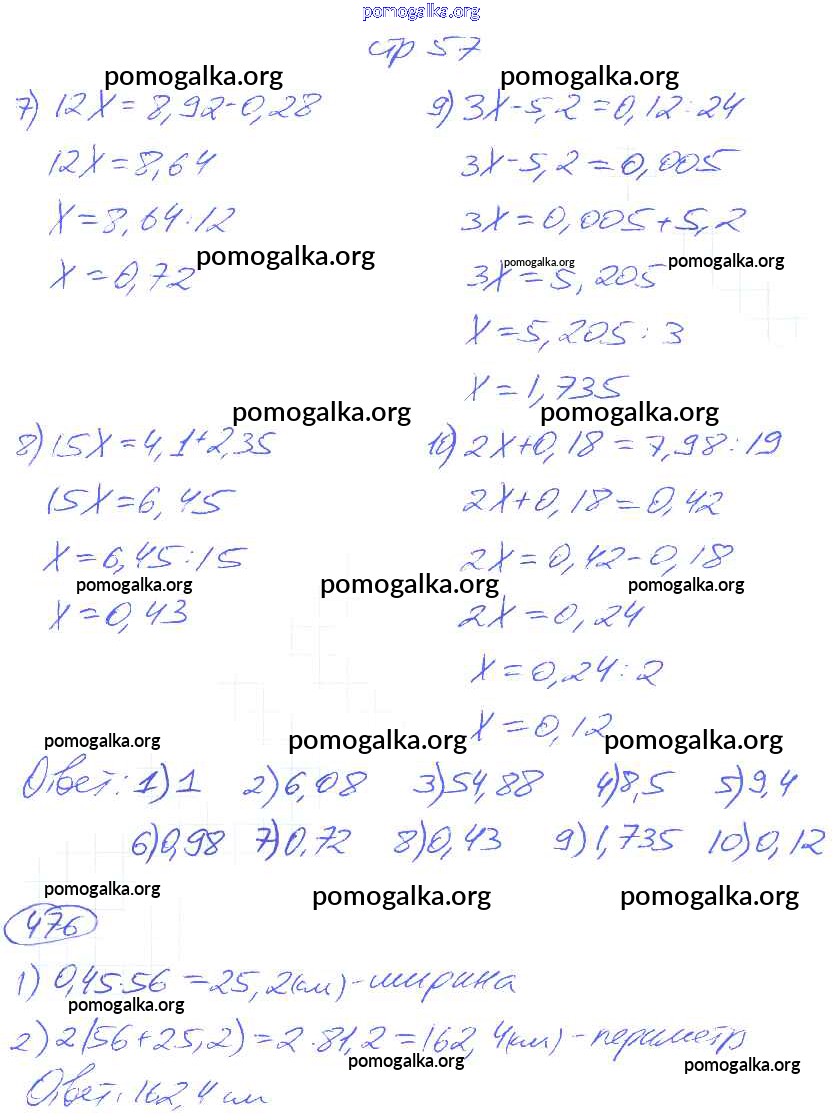 pomogalka.org
стр 57
pomogalka.org pomogalka.org
7) 12X = 8,92-0,28
12X = 8,64
X = 8,64:12
pomogalka.org
X = 0,72
9) 3X-5,2 = 0,12:24
3X-5,2 = 0,005
3X = 0,005+5,2
pomogalka.org pomogalka.org
3X = 5,205
X = 5,205:3
X = 1,735
pomogalka.org pomogalka.org
8) 15X = 4,1+2,35
15X = 6,45
X = 6,45:15
pomogalka.org pomogalka.org pomogalka.org
X = 0,43
10) 2X+0,18 = 7,98:19
2X+0,18 = 0,42
2X = 0,42-0,18
2X = 0,24
X = 0,24:2
X = 0,12
pomogalka.org pomogalka.org pomogalka.org
Ответ: 1) 1 2) 6,08 3) 54,88 4) 8,5 5) 9,4
6) 0,98 7) 0.72 8) 0,43 9) 1,735 10) 0,12
pomogalka.org pomogalka.org pomogalka.org
476
1) 0,45·56 = 25,2(см) - ширина
pomogalka.org
2) 2(56+25,2) = 2·81,2 = 162,4(см) - периметр
pomogalka.org pomogalka.org
Ответ: 162,4 см